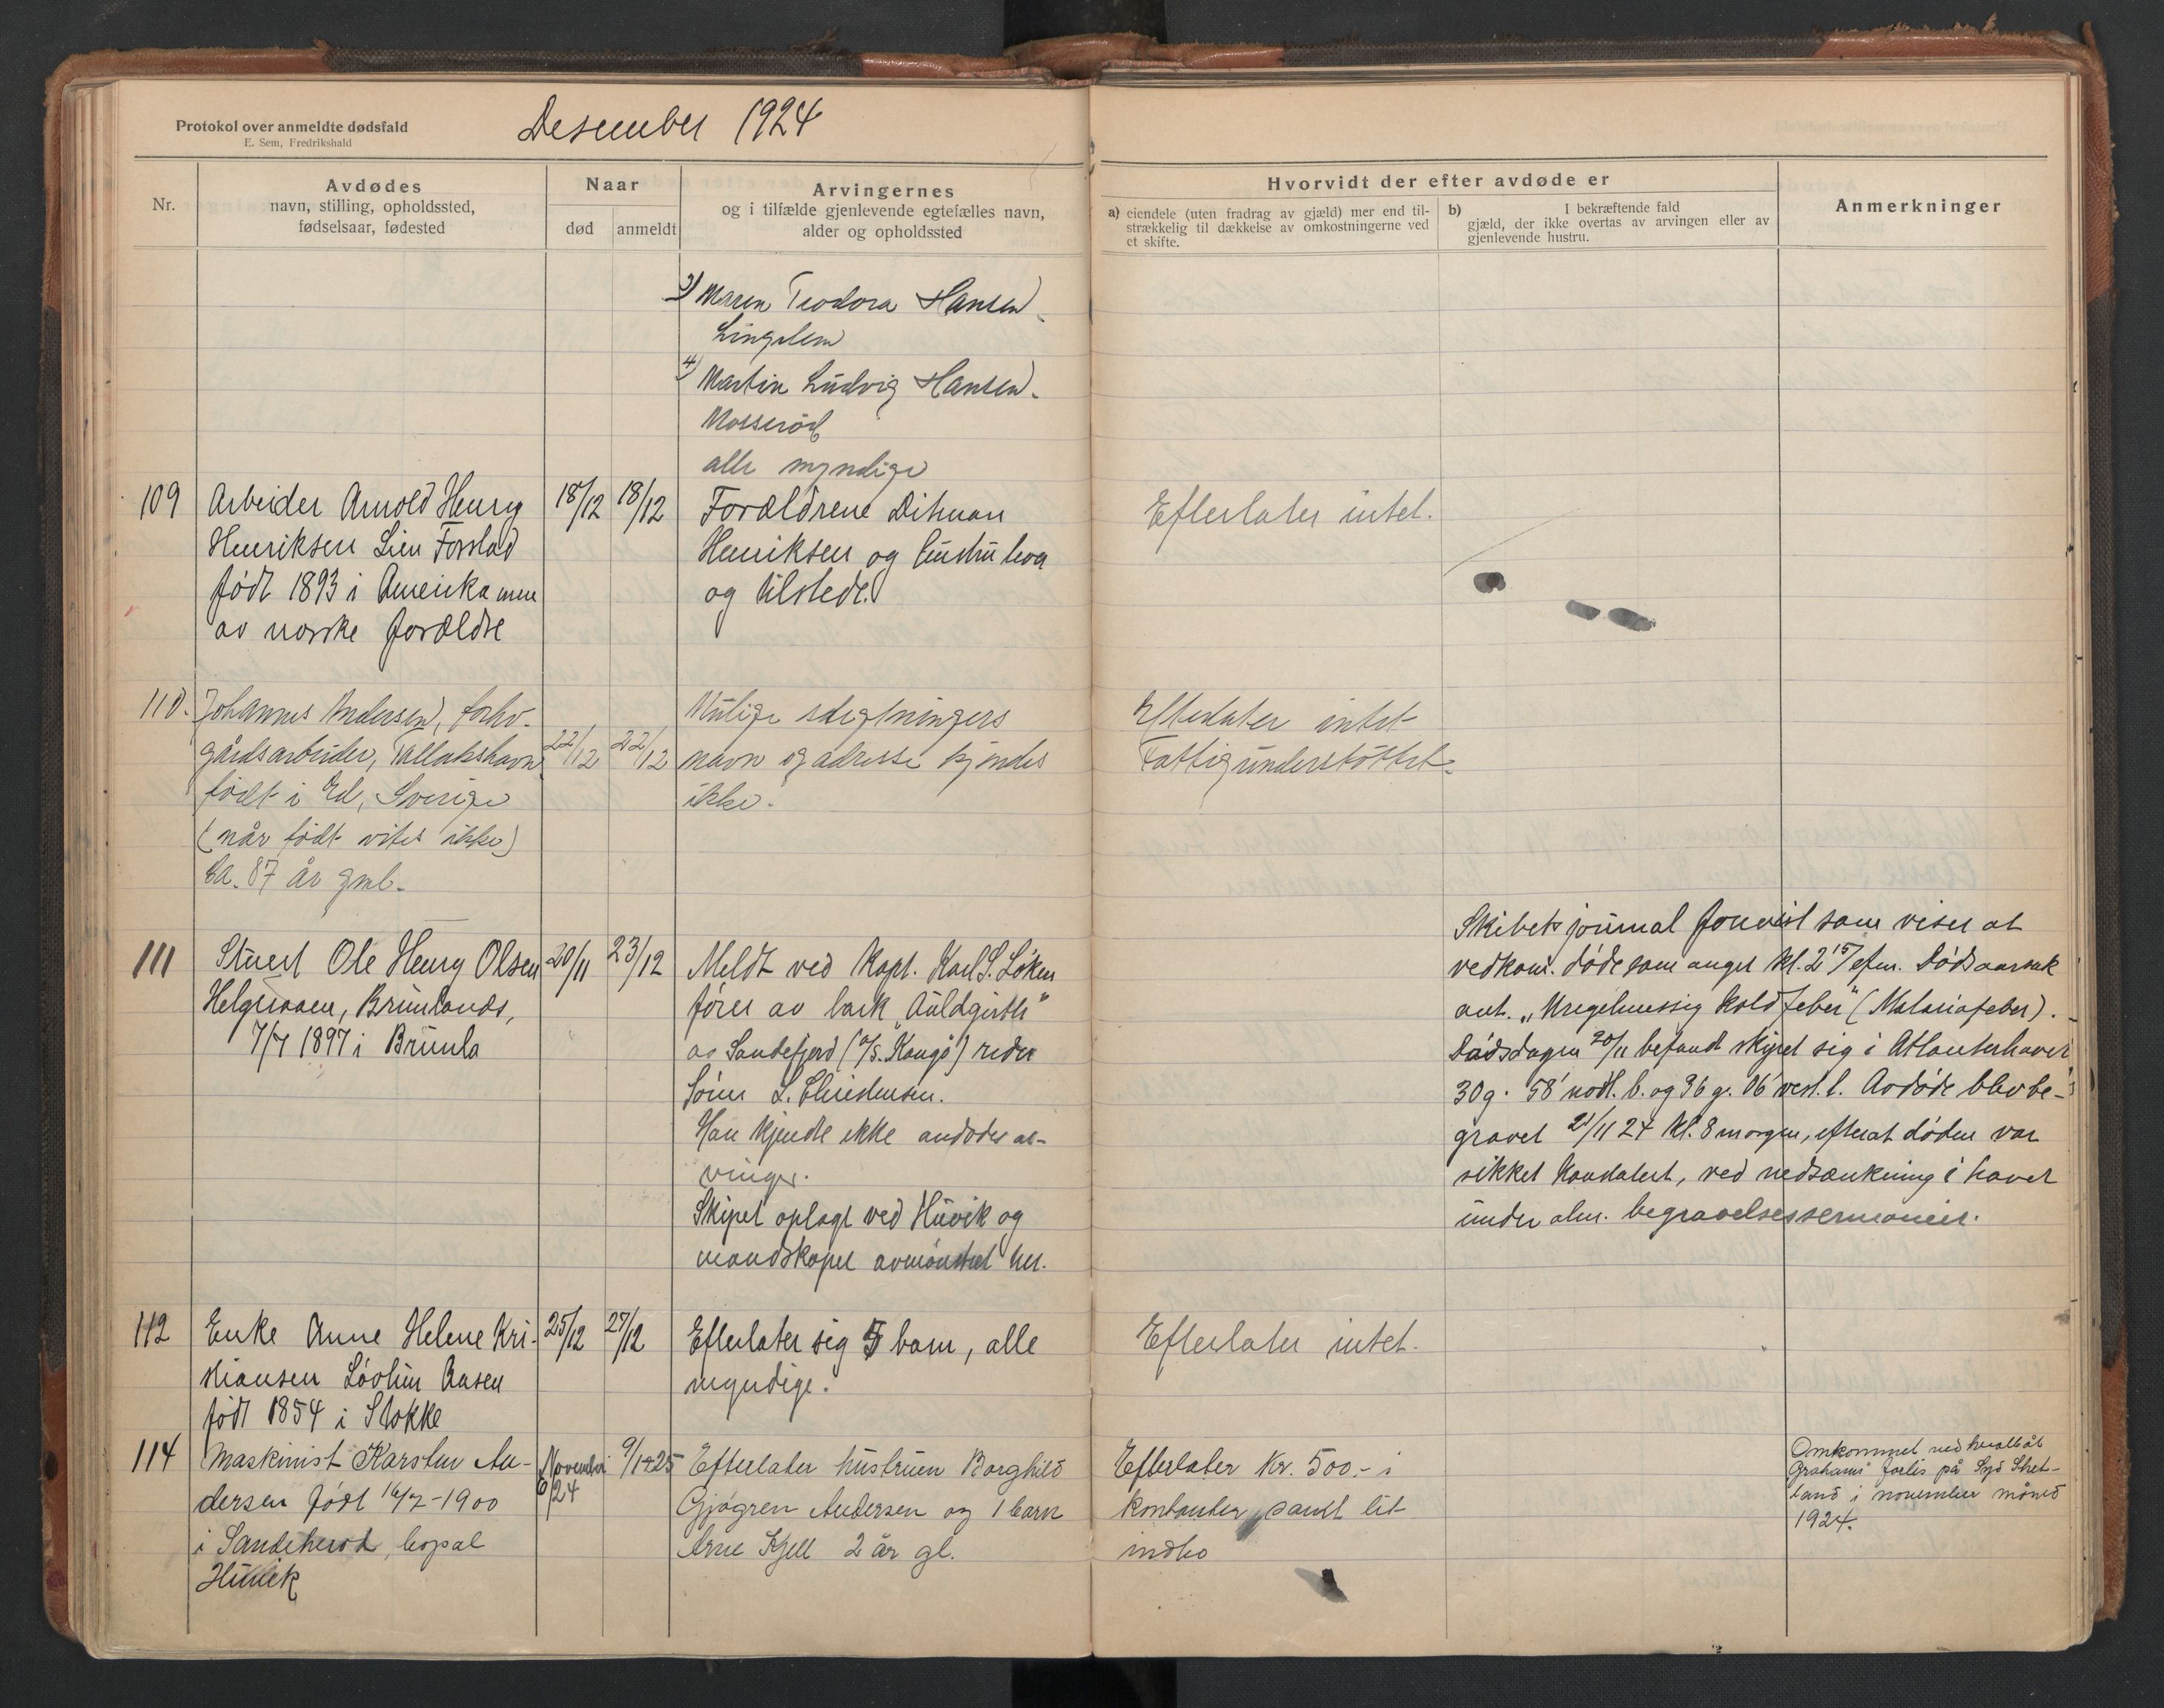 Protokol over anmeldte dødsfald
E. Sem, Fredrikshald
Desember 1924
Nr.
Avdødes
navn, stilling, opholdssted,
fødselsaar, fødested
Naar
død
anmeldt
Arvingernes
og i tilfælde gjenlevende egtefælles navn,
alder og opholdssted
Hvorvidt der efter avdøde er
a) eiendele (uten fradrag av gjæld) mer end til-
strækkelig til dækkelse av omkostningerne ved
et skifte.
b) I bekræftende fald
gjæld, der ikke overtas av arvingen eller av
gjenlevende hustru.
Anmerkninger
3) Maren Teodora Hansen
Lingelem
4) Martin Ludvig Hansen
Mosserød
alle myndige
109
Arbeider Arnold Henry
Henriksen Lien
født 1893 i Amerika men
av norske forældre
18/12
18/12
Forældrene Ditman
Henriksen og hustru
og tilstede.
Efterlater intet.
110.
Johannes Andersen, forhv.
gårdsarbeider, Tallakshavn
født i Ed, Sverige
(når født vites ikke)
ca. 87 år gml.
22/12
22/12
Mulige slegtningers
navn og adresse kjendes
ikke.
Efterlater intet
Fattigunderstøttet.
111
Stuert Ole Henry Olsen
Helgeroaen, Brunlands,
7/7 1897 i Brunla
20/11
23/12
Meldt ved Kapt. Karl S. Løken
fører av bark "Auldgirth"
av Sandefjord (A/S. Kongo) reder
Søren L. Christensen.
Han kjendte ikke avdødes ar-
vinger.
Skipet oplagt ved Huvik og
mandskapet avmønstret her.
Skibets journal forevist som viser at
vedkom. døde som anget kl. 2 15/ efm. Dødsaarsak
ant. "Uregelmessig koldfeber" (Malariafeber).
Dødsdagen 20/11 befandt skipet sig i Atlanterhavet
30 g. 58' nordl. b. og 36 gr. 06' vest. l. Avdøde blev be-
gravet 21/11 24 kl. 8 morgen, efterat døden var
sikkert konstatert, ved nedsænkning i havet
under alm. begravelsessermonier.
112
Enke Anne Helene Kri-
stiansen Løvlien Aasen
født 1854 i Stokke
25/12
27/12
Efterlater sig 5 barn, alle
myndige.
Efterlater intet.
114
Maskinist Karsten An-
dersen født 16/7-1900
i Sandeherod, bopæl
Huvik
November
24
9/1-25
Efterlater hustruen Borghild
Gjøgren Andersen og 1 barn
Arne Kjell 2 år gl.
Efterlater kr. 500.- i
kontanter, samt lit
indbo
Omkommet ved hvalbåt
"Grahams" forlis på Syd Shet-
land i november måned
1924.